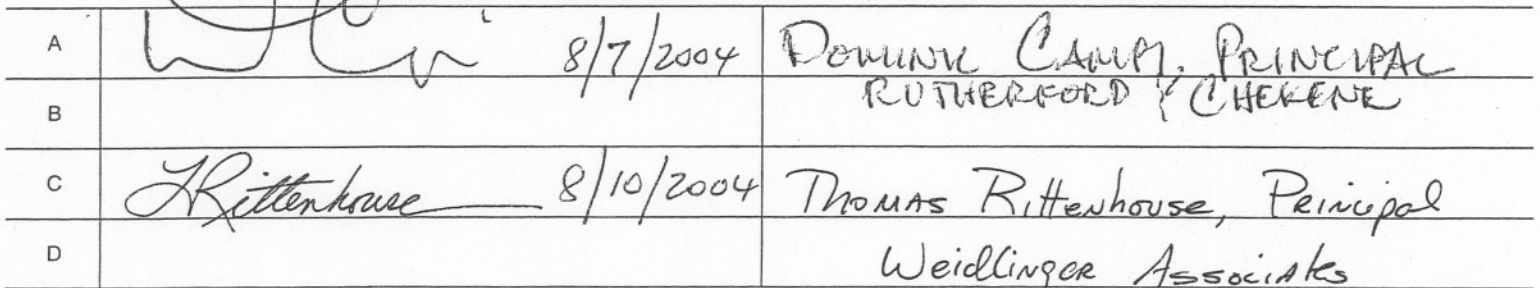 A 8/7/2004 DOMINIK CAMPI, PRINCIPAL
B RUTHERFORD & CHEKENE
C TRittenhouse 8/10/2004 THOMAS RittenHouse, Principal
D Weidlinger Associates